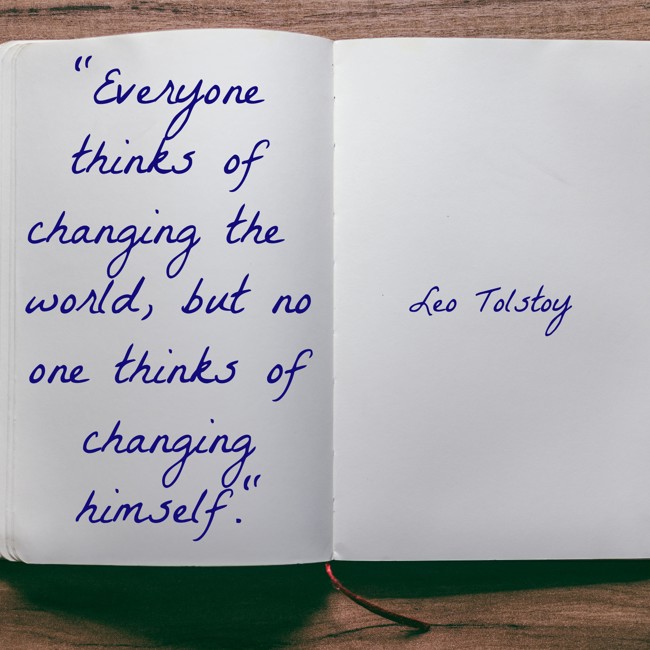 “Everyone
thinks of
changing the
world, but no
one thinks of
changing
himself.“
Leo Tolstoy